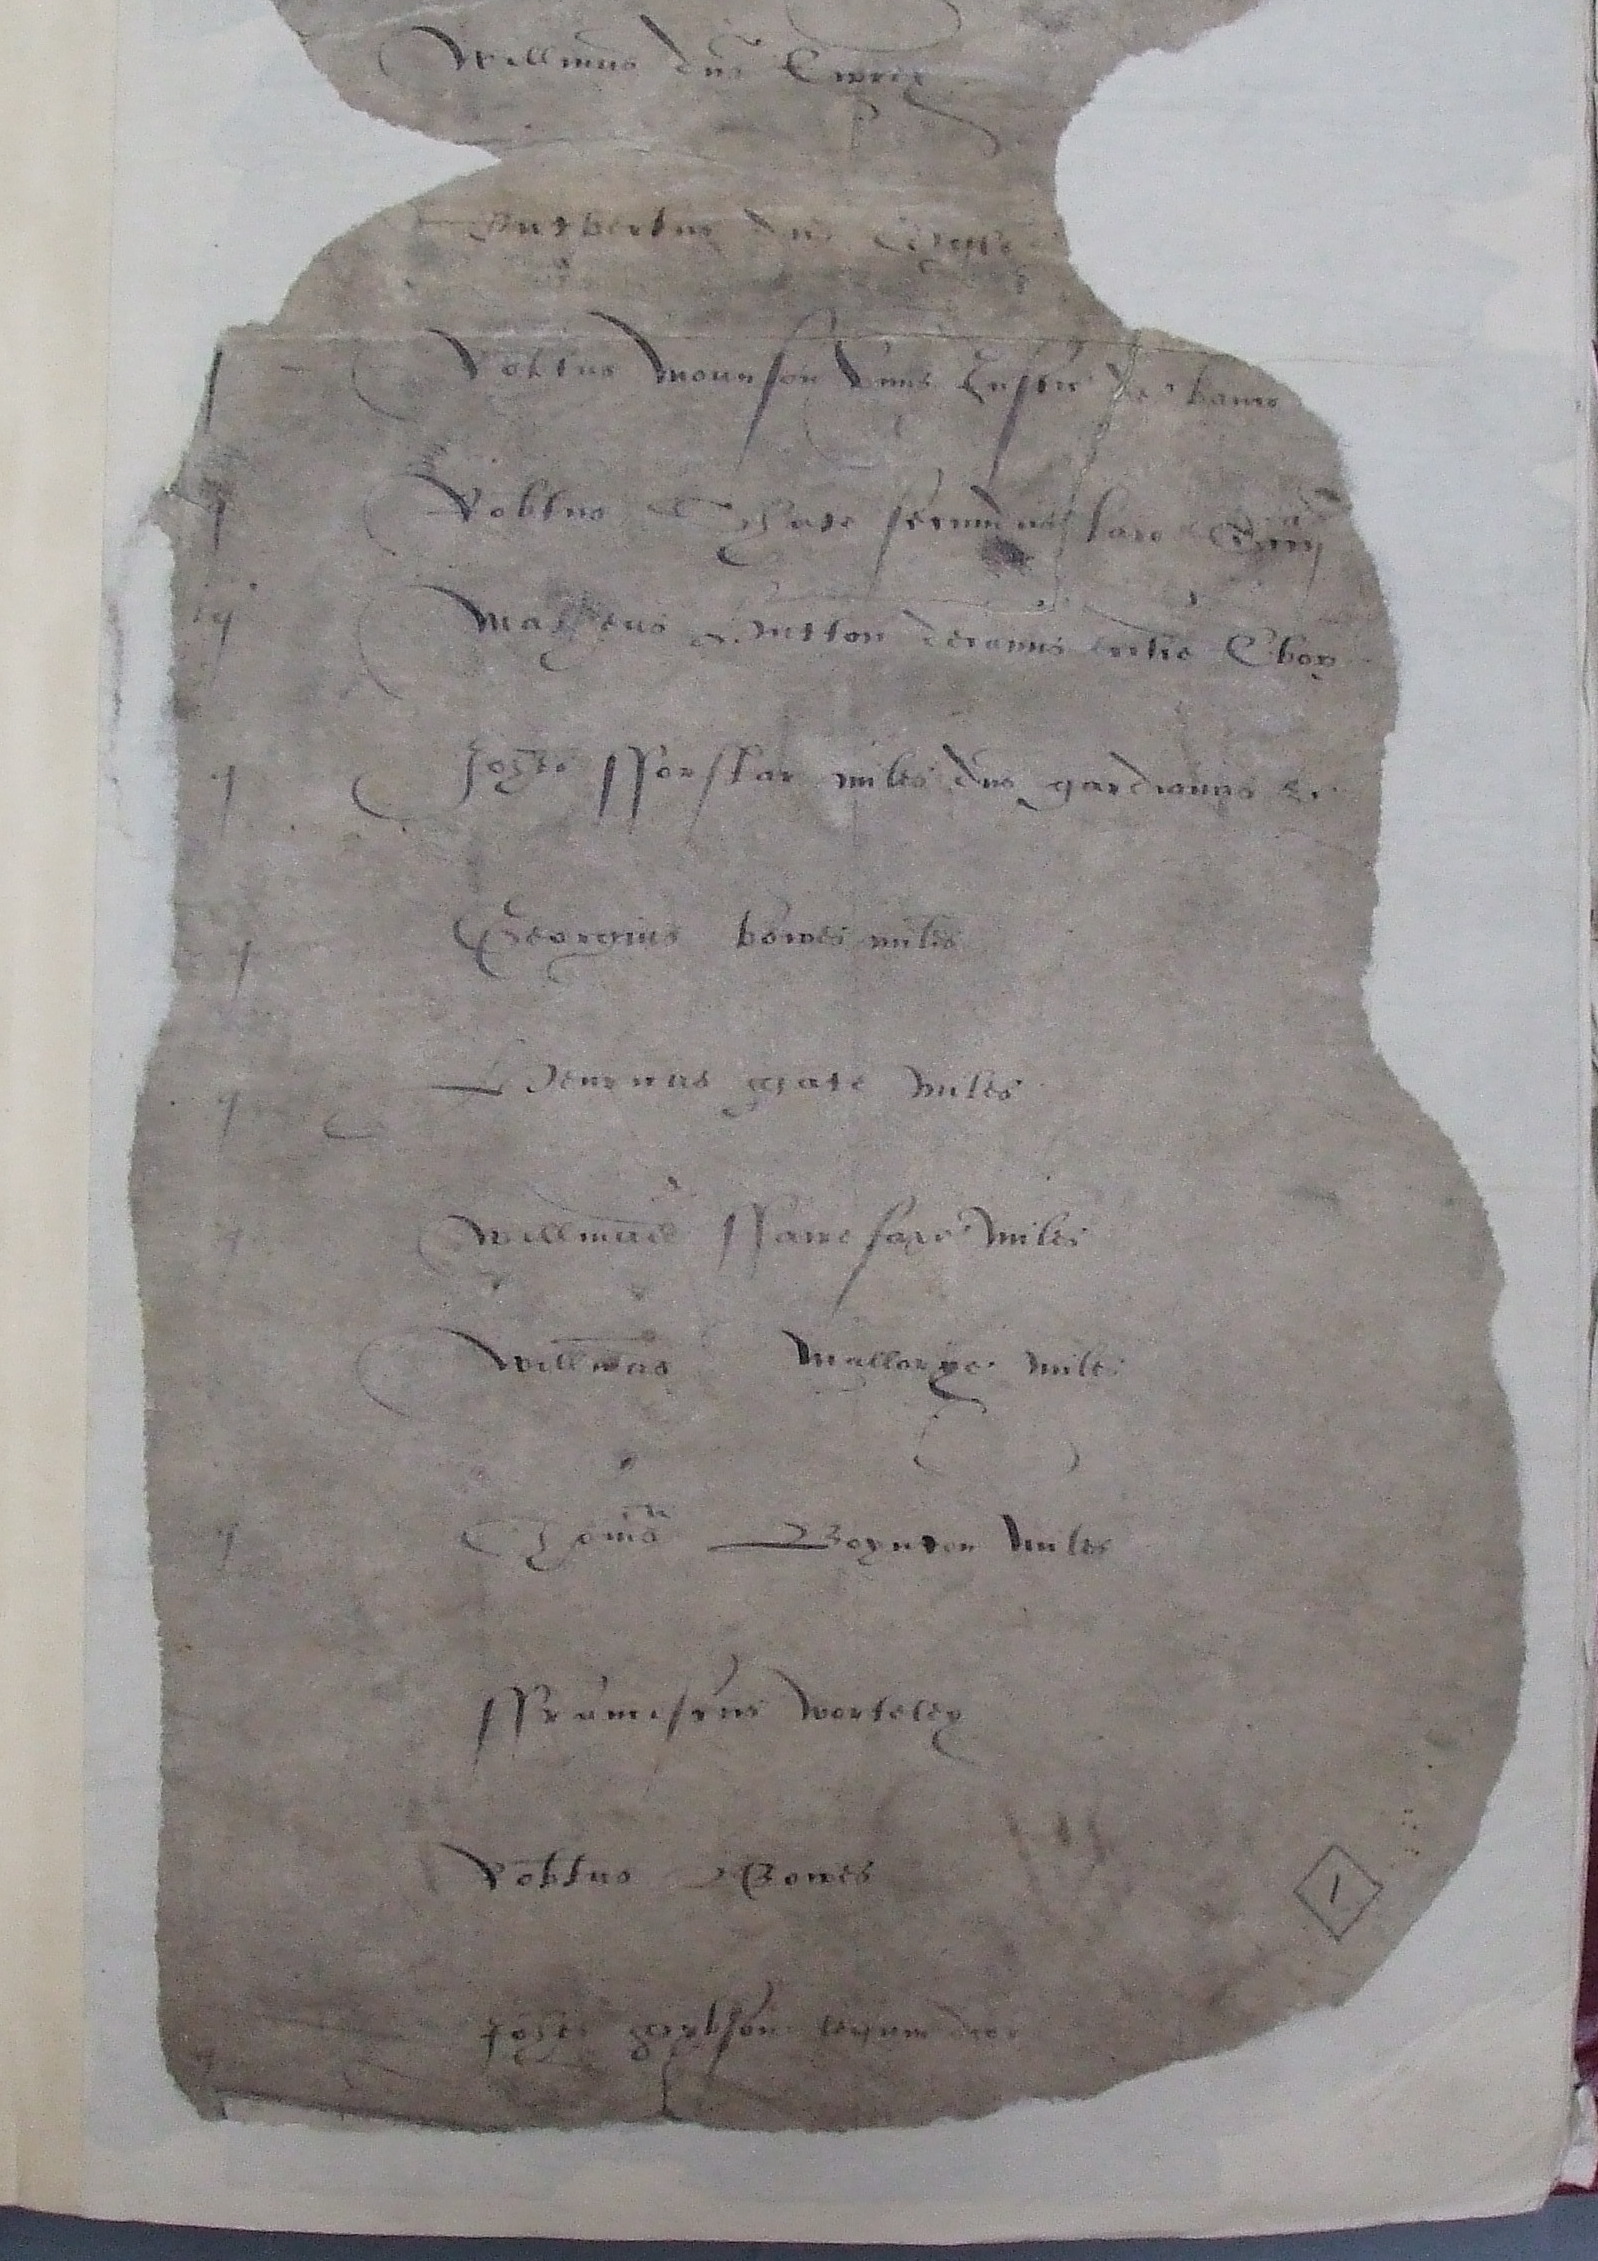 Willmus dns Ewrie
Cuthbertus dns Ogle
Robtus Mounson unus Justic de banco
Robtus
Matheus Hutton decanus ecclie Ebor
Johes fforster miles dns gardianus &c
Georgius bowes miles
Henricus gate miles
Willmus ffairefaxe miles
Willmus Mallorye miles
Thomas Boynton miles
ffranciscus Worteley
Robtus Bowes
Johes gybson legum dcor
1